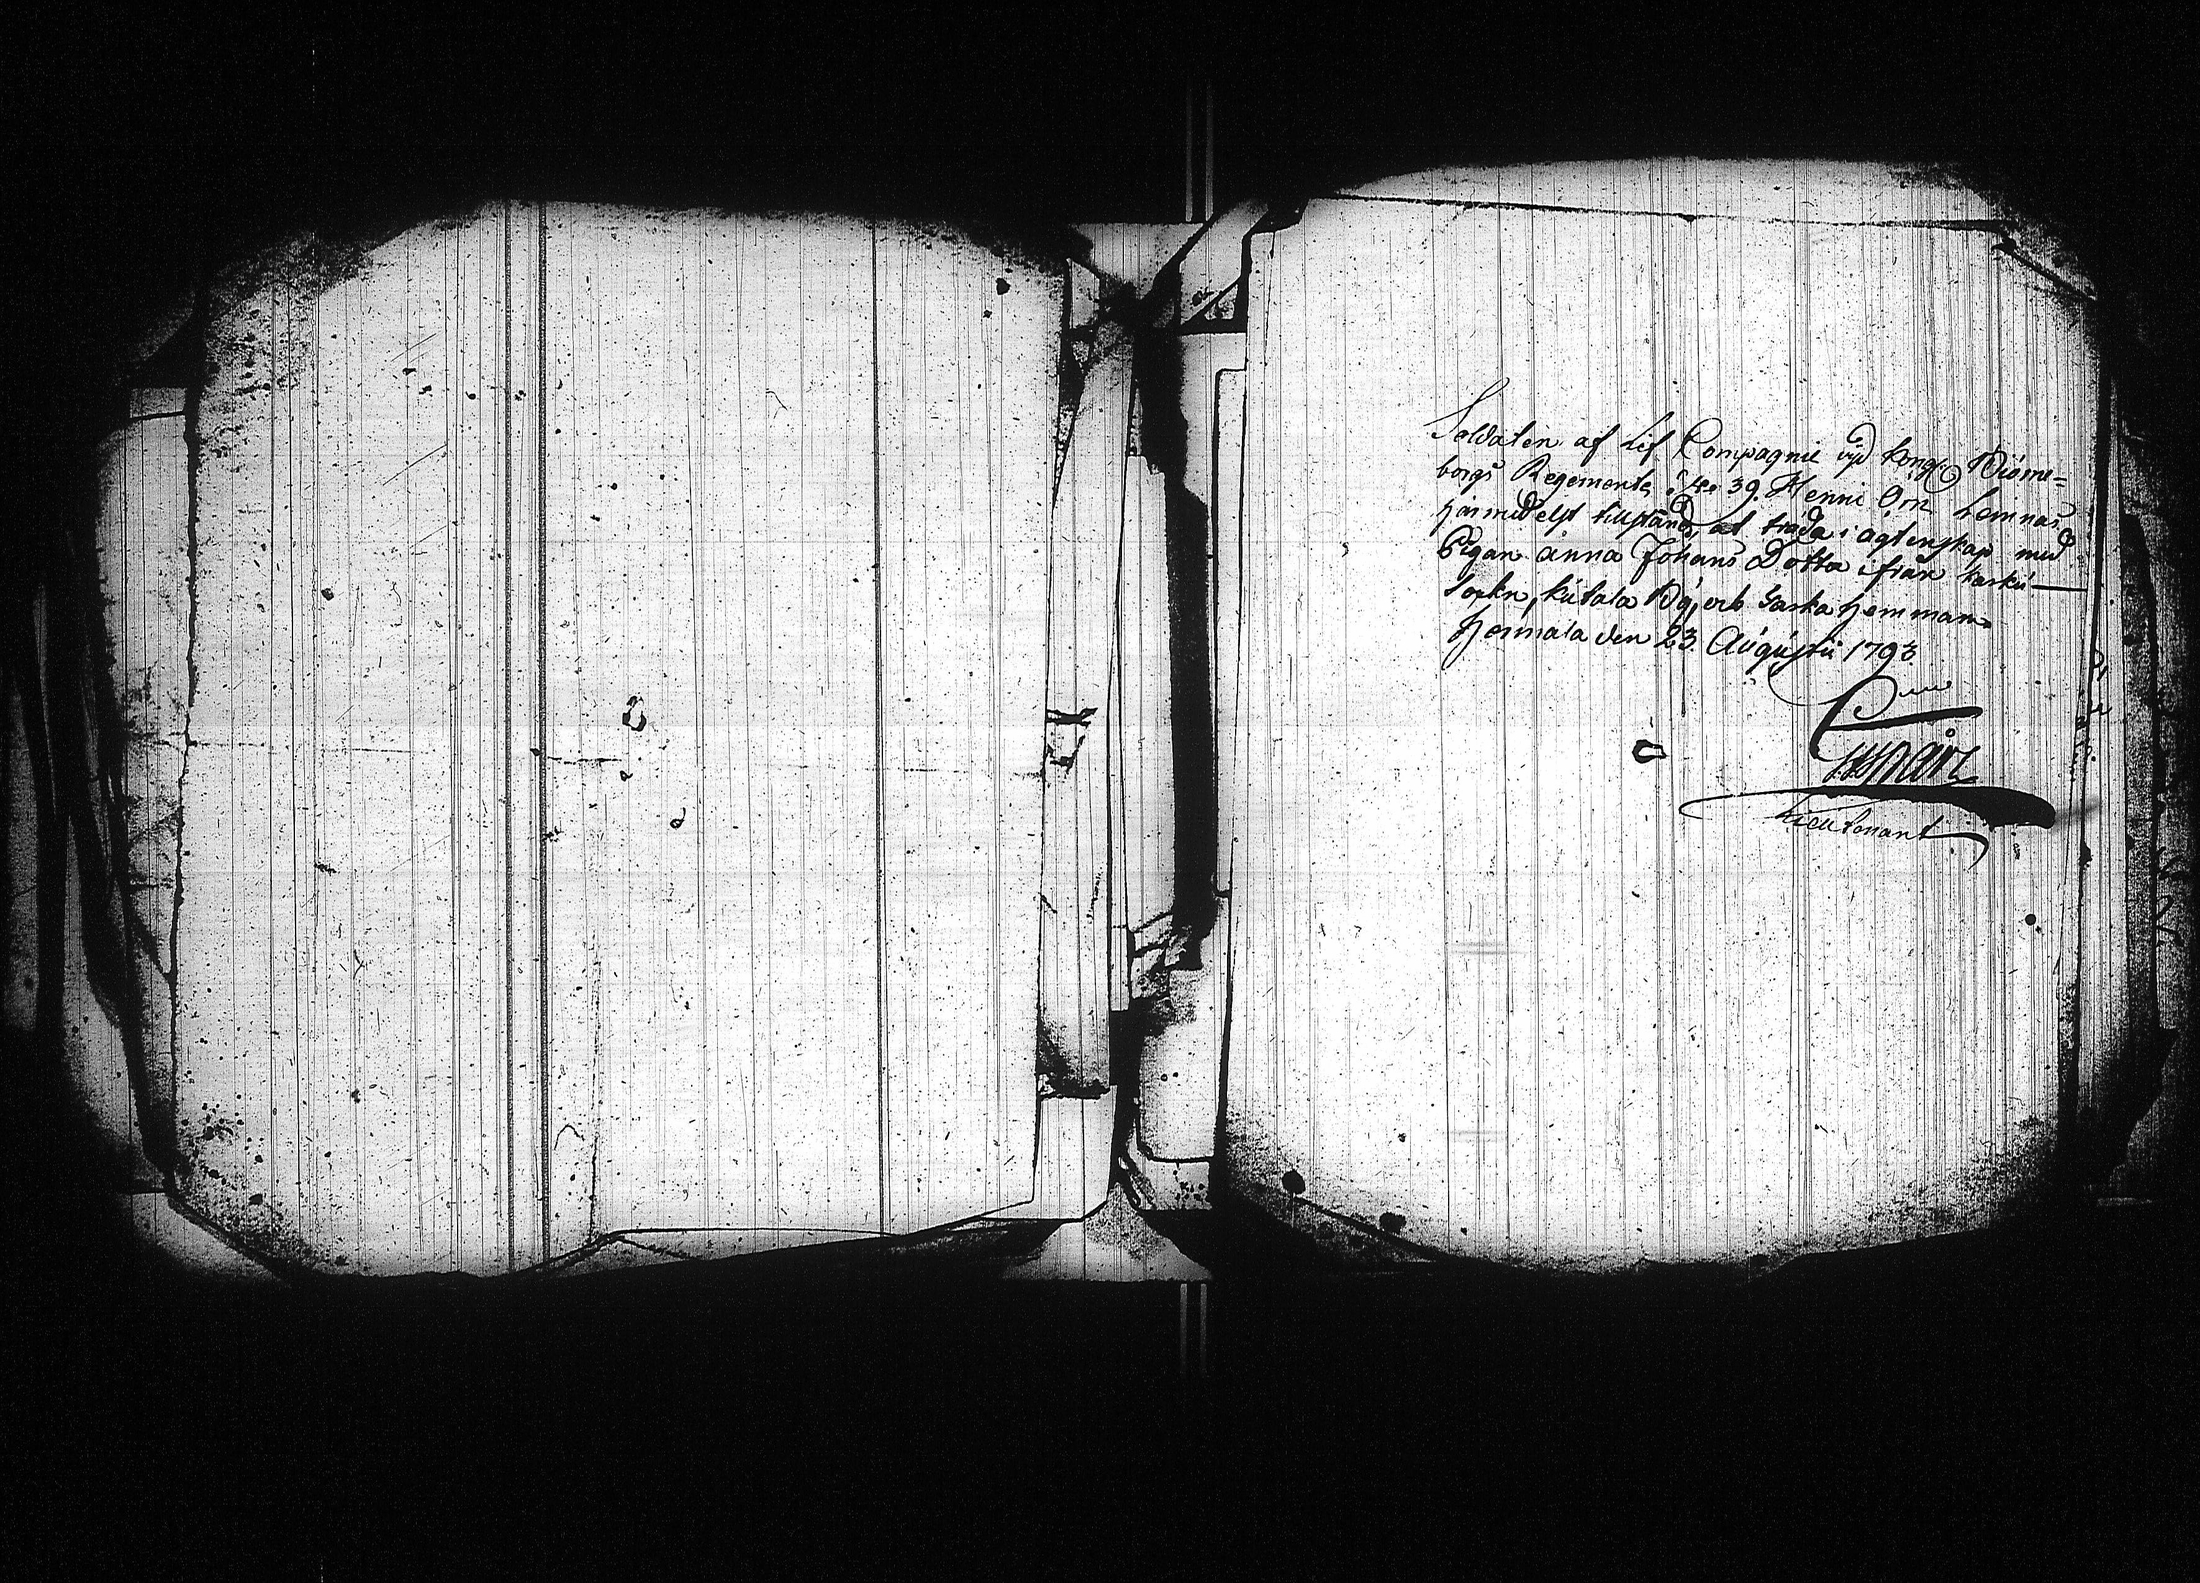 Soldaten af Lif Compagnie vid Kongl. Biörne=
borgs Regemente, No 39. Henric Örn Lemnas
härmedelst tillstånd, at träda i ägtenskap med
Pigan Anna Johans Dotter ifrån Karkú
Sockn, Kútala By, och Saska hemman
Heiniala den 23 Augústii 1793
Lieutenant